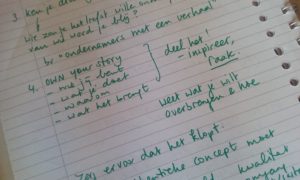 3. ken je
wie zou je het liefst willen
van wie word je blij?
br "ondernemers met een verhaal"
4. OWN YOUR STORY
- wie jij bent
- wat je doet
- waarom
- wat het brengt
deel het!
- inspireer,
raak.
weet wat je wilt
overbrengen & hoe
Zorg ervoor dat het klopt.
concept moet
kwaliteit